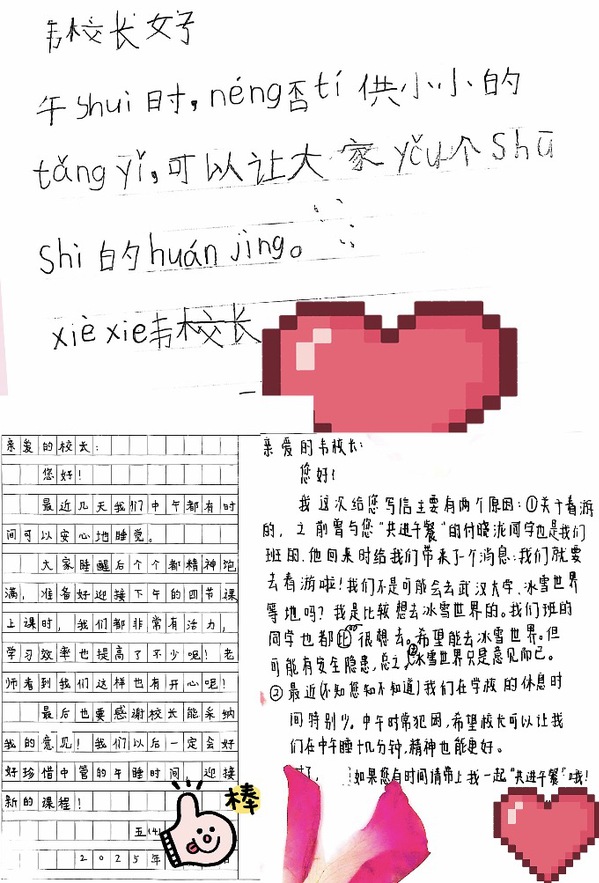 韦校长好
午shui时，néng否tí供小小的
tǎng yǐ，可以让大家yǒu个Shū
Shi的huán jìng。
xiè xie韦校长
亲爱的校长：
您好！
最近几天我们中午都有时
间可以安心地睡觉。
大家睡醒后个个都精神饱
满，准备好迎接下午的四节课
上课时，我们都非常有活力，
学习效率也提高了不少呢！老
师看到我们这样也有开心呢！
最后也要感谢校长能采纳
我的意见！我们以后一定会好
好珍惜中管的午睡时间，迎接
新的课程！
五（4）
2025年
棒
亲爱的韦校长：
您好！
我这次给您写信主要有两个原因：①关于春游
的，之前曾与您“共进午餐”的付晓泷同学也是我们
班的，他回来时给我们带来了个消息：我们就要
去春游啦！我们不是可能会去武汉大学、冰雪世界
等地吗？我是比较想去冰雪世界的。我们班的
同学也都很想去。希望能去冰雪世界。但
可能有安全隐患，总之，冰雪世界只是意见而已。
②最近（不知您知不知道）我们在学校的休息时
间特别少。中午时常犯困，希望校长可以让我
们在中午睡十几分钟，精神也能更好。
如果您有时间请带上我一起“共进午餐”哦！